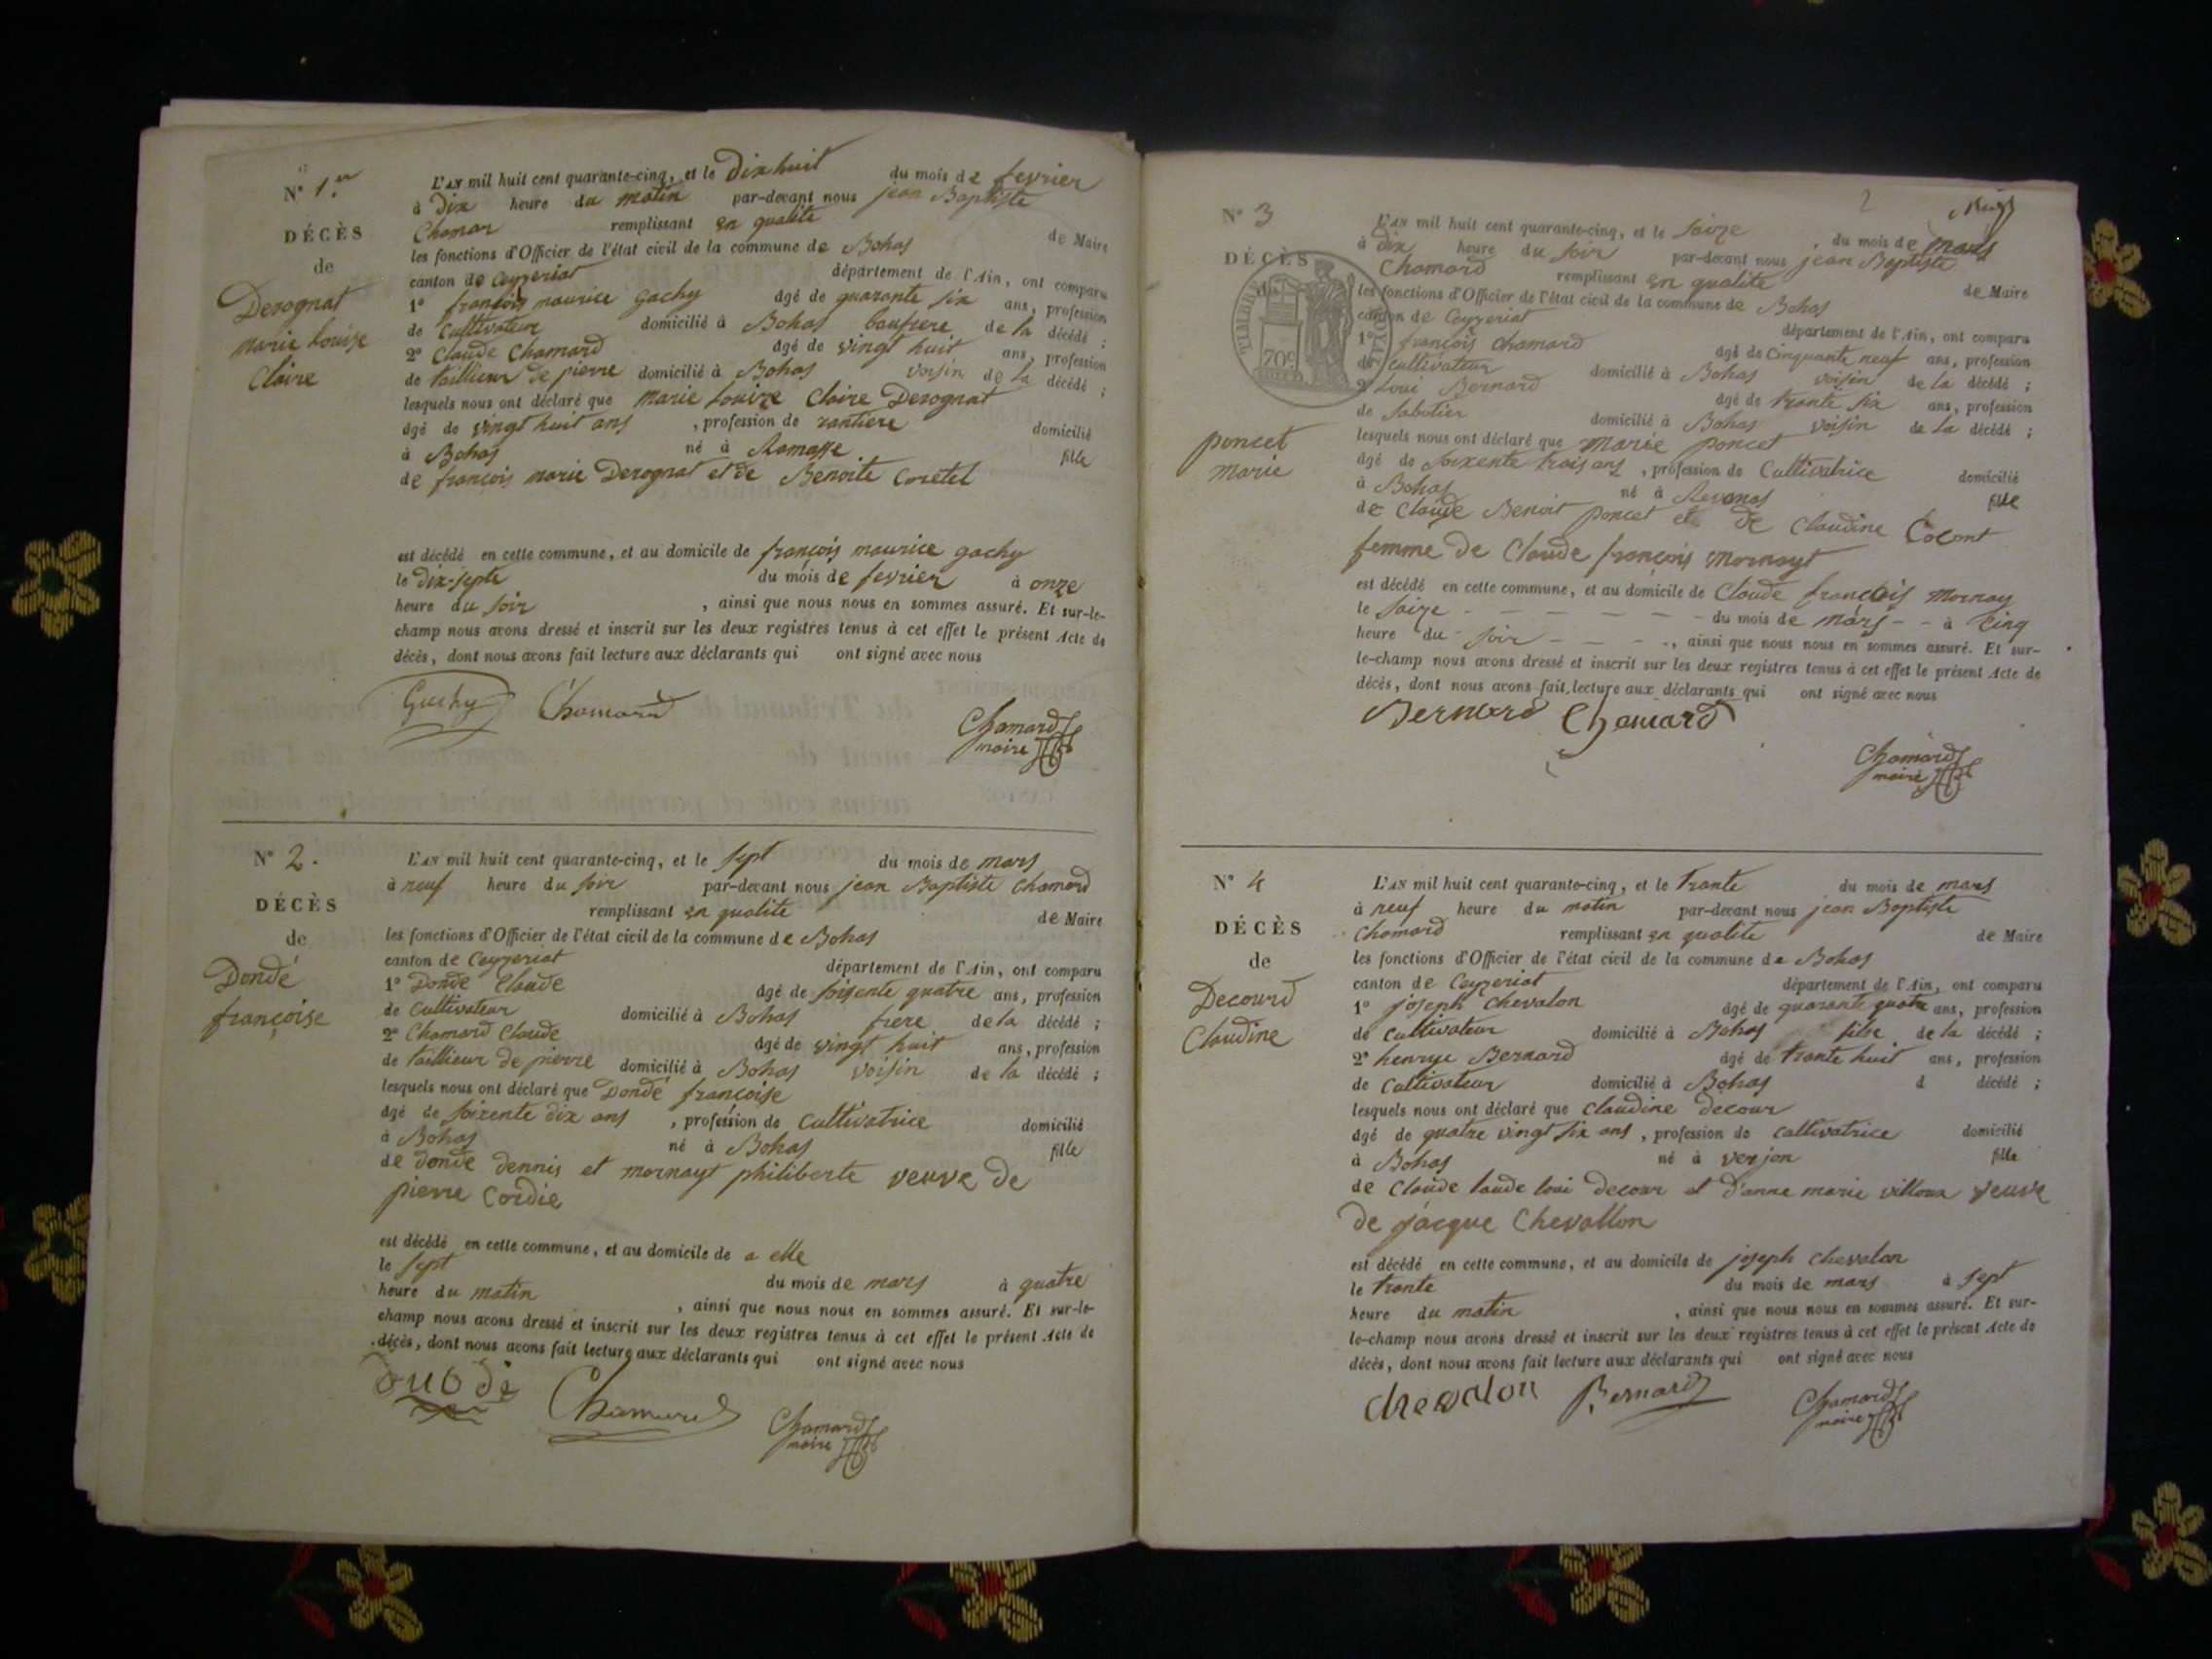 N° 1.er
DÉCÈS
de
Derognat
marie louise
Claire
L'AN mil huit cent quarante-cinq, et le Dix huit du mois de fevrier
à Dix heure du matin par-devant nous jean Baptiste
Chamar remplissant en qualite de Maire
les fonctions d'Officier de l'état civil de la commune de Bohas
canton de Ceyzeriat département de l'Ain, ont comparu
1° françois maurice gachy âgé de quarante six ans, profession
de Cultivateur domicilié à Bohas baufrere de la décédé ;
2° Claude Chamard âgé de vingt huit ans, profession
de taillieur de pierre domicilié à Bohas voisin de la décédé ;
lesquels nous ont déclaré que marie louize Claire Derognat
âgé de vingt huit ans , profession de rantiere domicilié
à Bohas né à Ramasse fille
de françois marie Derognat et de Benoite Coretel
est décédé en cette commune, et au domicile de françois maurice gachy
le dix-septe du mois de fevrier à onze
heure du soir , ainsi que nous nous en sommes assuré. Et sur-le-
champ nous avons dressé et inscrit sur les deux registres tenus à cet effet le présent Acte de
décès, dont nous avons fait lecture aux déclarants qui ont signé avec nous
Gachy Chamard Chamard
maire
N° 2.
DÉCÈS
de
Dondé
françoise
L'AN mil huit cent quarante-cinq, et le sept du mois de mars
à neuf heure du soir par-devant nous jean Baptiste Chamard
remplissant en qualite de Maire
les fonctions d'Officier de l'état civil de la commune de Bohas
canton de Ceyzeriat département de l'Ain, ont comparu
1° Donde Claude âgé de soixente quatre ans, profession
de Cultivateur domicilié à Bohas frere de la décédé ;
2° Chamard Claude âgé de vingt huit ans, profession
de taillieur de pierre domicilié à Bohas voisin de la décédé ;
lesquels nous ont déclaré que Dondé françoise
âgé de soixente dix ans , profession de Cultivatrice domicilié
à Bohas né à Bohas fille
de donde dennis et mornayt philiberte veuve de
pierre Cordie
est décédé en cette commune, et au domicile de a elle
le sept du mois de mars à quatre
heure du matin , ainsi que nous nous en sommes assuré. Et sur-le-
champ nous avons dressé et inscrit sur les deux registres tenus à cet effet le présent Acte de
décès, dont nous avons fait lecture aux déclarants qui ont signé avec nous
Chamard Chamard
maire
2
N° 3
DÉCÈS
TIMBRE ROYAL
70c
poncet
marie
L'AN mil huit cent quarante-cinq, et le saize , du mois de mars
à dix heure du soir par-devant nous jean Baptiste
Chamard remplissant en qualite de Maire
les fonctions d'Officier de l'état civil de la commune de Bohas
canton de Ceyzeriat département de l'Ain, ont comparu
1° françois Chamard âgé de Cinquante neuf ans, profession
de cultivateur domicilié à Bohas voisin de la décédé ;
2° Loui Bernard âgé de trante six ans, profession
de sabotier domicilié à Bohas voisin de la décédé ;
lesquels nous ont déclaré que marie poncet
âgé de soixente trois ans , profession de Cultivatrice domicilié
à Bohas né à Revonas fille
de Claude Benoit poncet et de Claudine Cocont
femme de Claude françois mornayt
est décédé en cette commune, et au domicile de Claude françois mornay
le saize - - - - - - du mois de mars - - à Cinq
heure du soir - - - , ainsi que nous nous en sommes assuré. Et sur-
le-champ nous avons dressé et inscrit sur les deux registres tenus à cet effet le présent Acte de
décès, dont nous avons fait lecture aux déclarants qui ont signé avec nous
Bernard Chamard
Chamard
maire
N° 4
DÉCÈS
de
Decourd
Claudine
L'AN mil huit cent quarante-cinq, et le trante du mois de mars
à neuf heure du matin par-devant nous jean Baptiste
Chamard remplissant en qualite de Maire
les fonctions d'Officier de l'état civil de la commune de Bohas
canton de Ceyzeriat département de l'Ain, ont comparu
1° joseph Chevalon âgé de quarante quatre ans, profession
de cultivateur domicilié à Bohas de la décédé ;
2° henrye Bernard âgé de trante huit ans, profession
de Cultivateur domicilié à Bohas d décédé ;
lesquels nous ont déclaré que Claudine decour
âgé de quatre vingt six ans , profession de Cultivatrice domicilié
à Bohas né à verjon fille
de Claude laude loui decour et d'anne marie villoux veuve
de jacque Chevallon
est décédé en cette commune, et au domicile de joseph Chevalon
le trante du mois de mars à sept
heure du matin , ainsi que nous nous en sommes assuré. Et sur-
le-champ nous avons dressé et inscrit sur les deux registres tenus à cet effet le présent Acte de
décès, dont nous avons fait lecture aux déclarants qui ont signé avec nous
Chevalon Bernard Chamard
maire